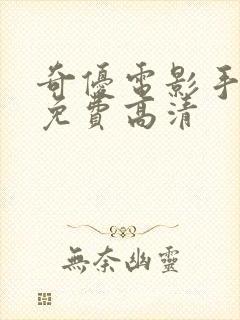 奇優電影手
免費高清
無奈幽靈